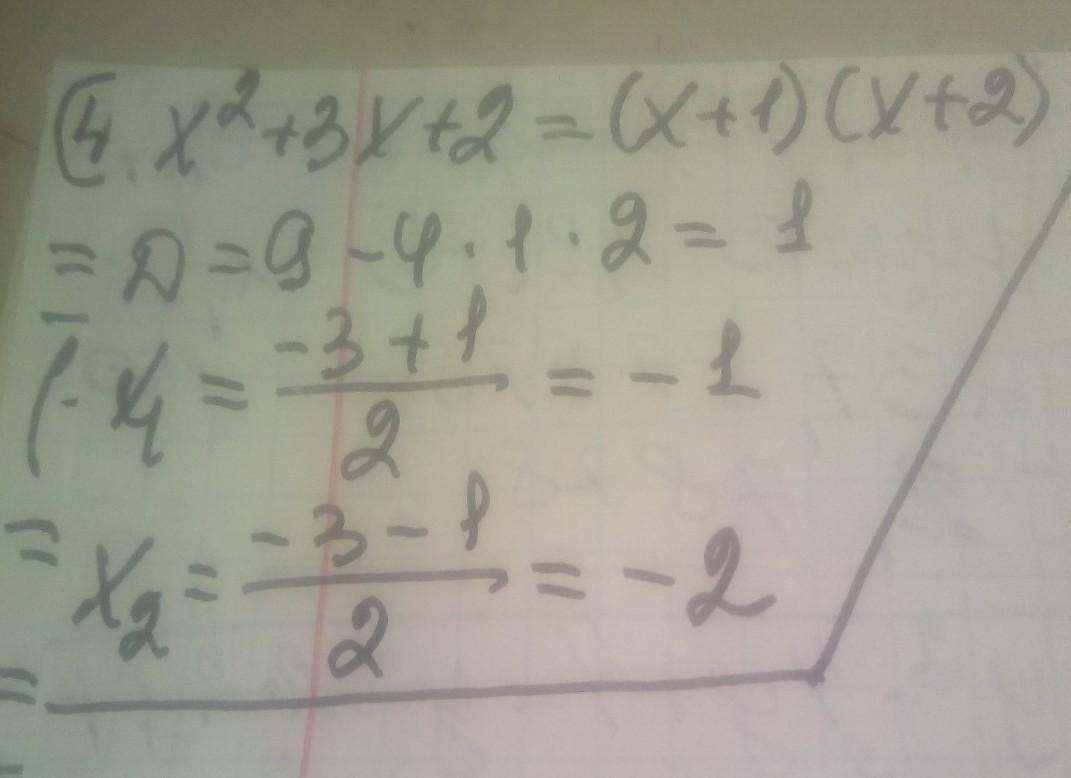 4. x² + 3x + 2 = (x + 1)(x + 2)
= D = 9 - 4 · 1 · 2 = 1
x₁ = (-3 + 1)/2 = -1
= x₂ = (-3 - 1)/2 = -2
=